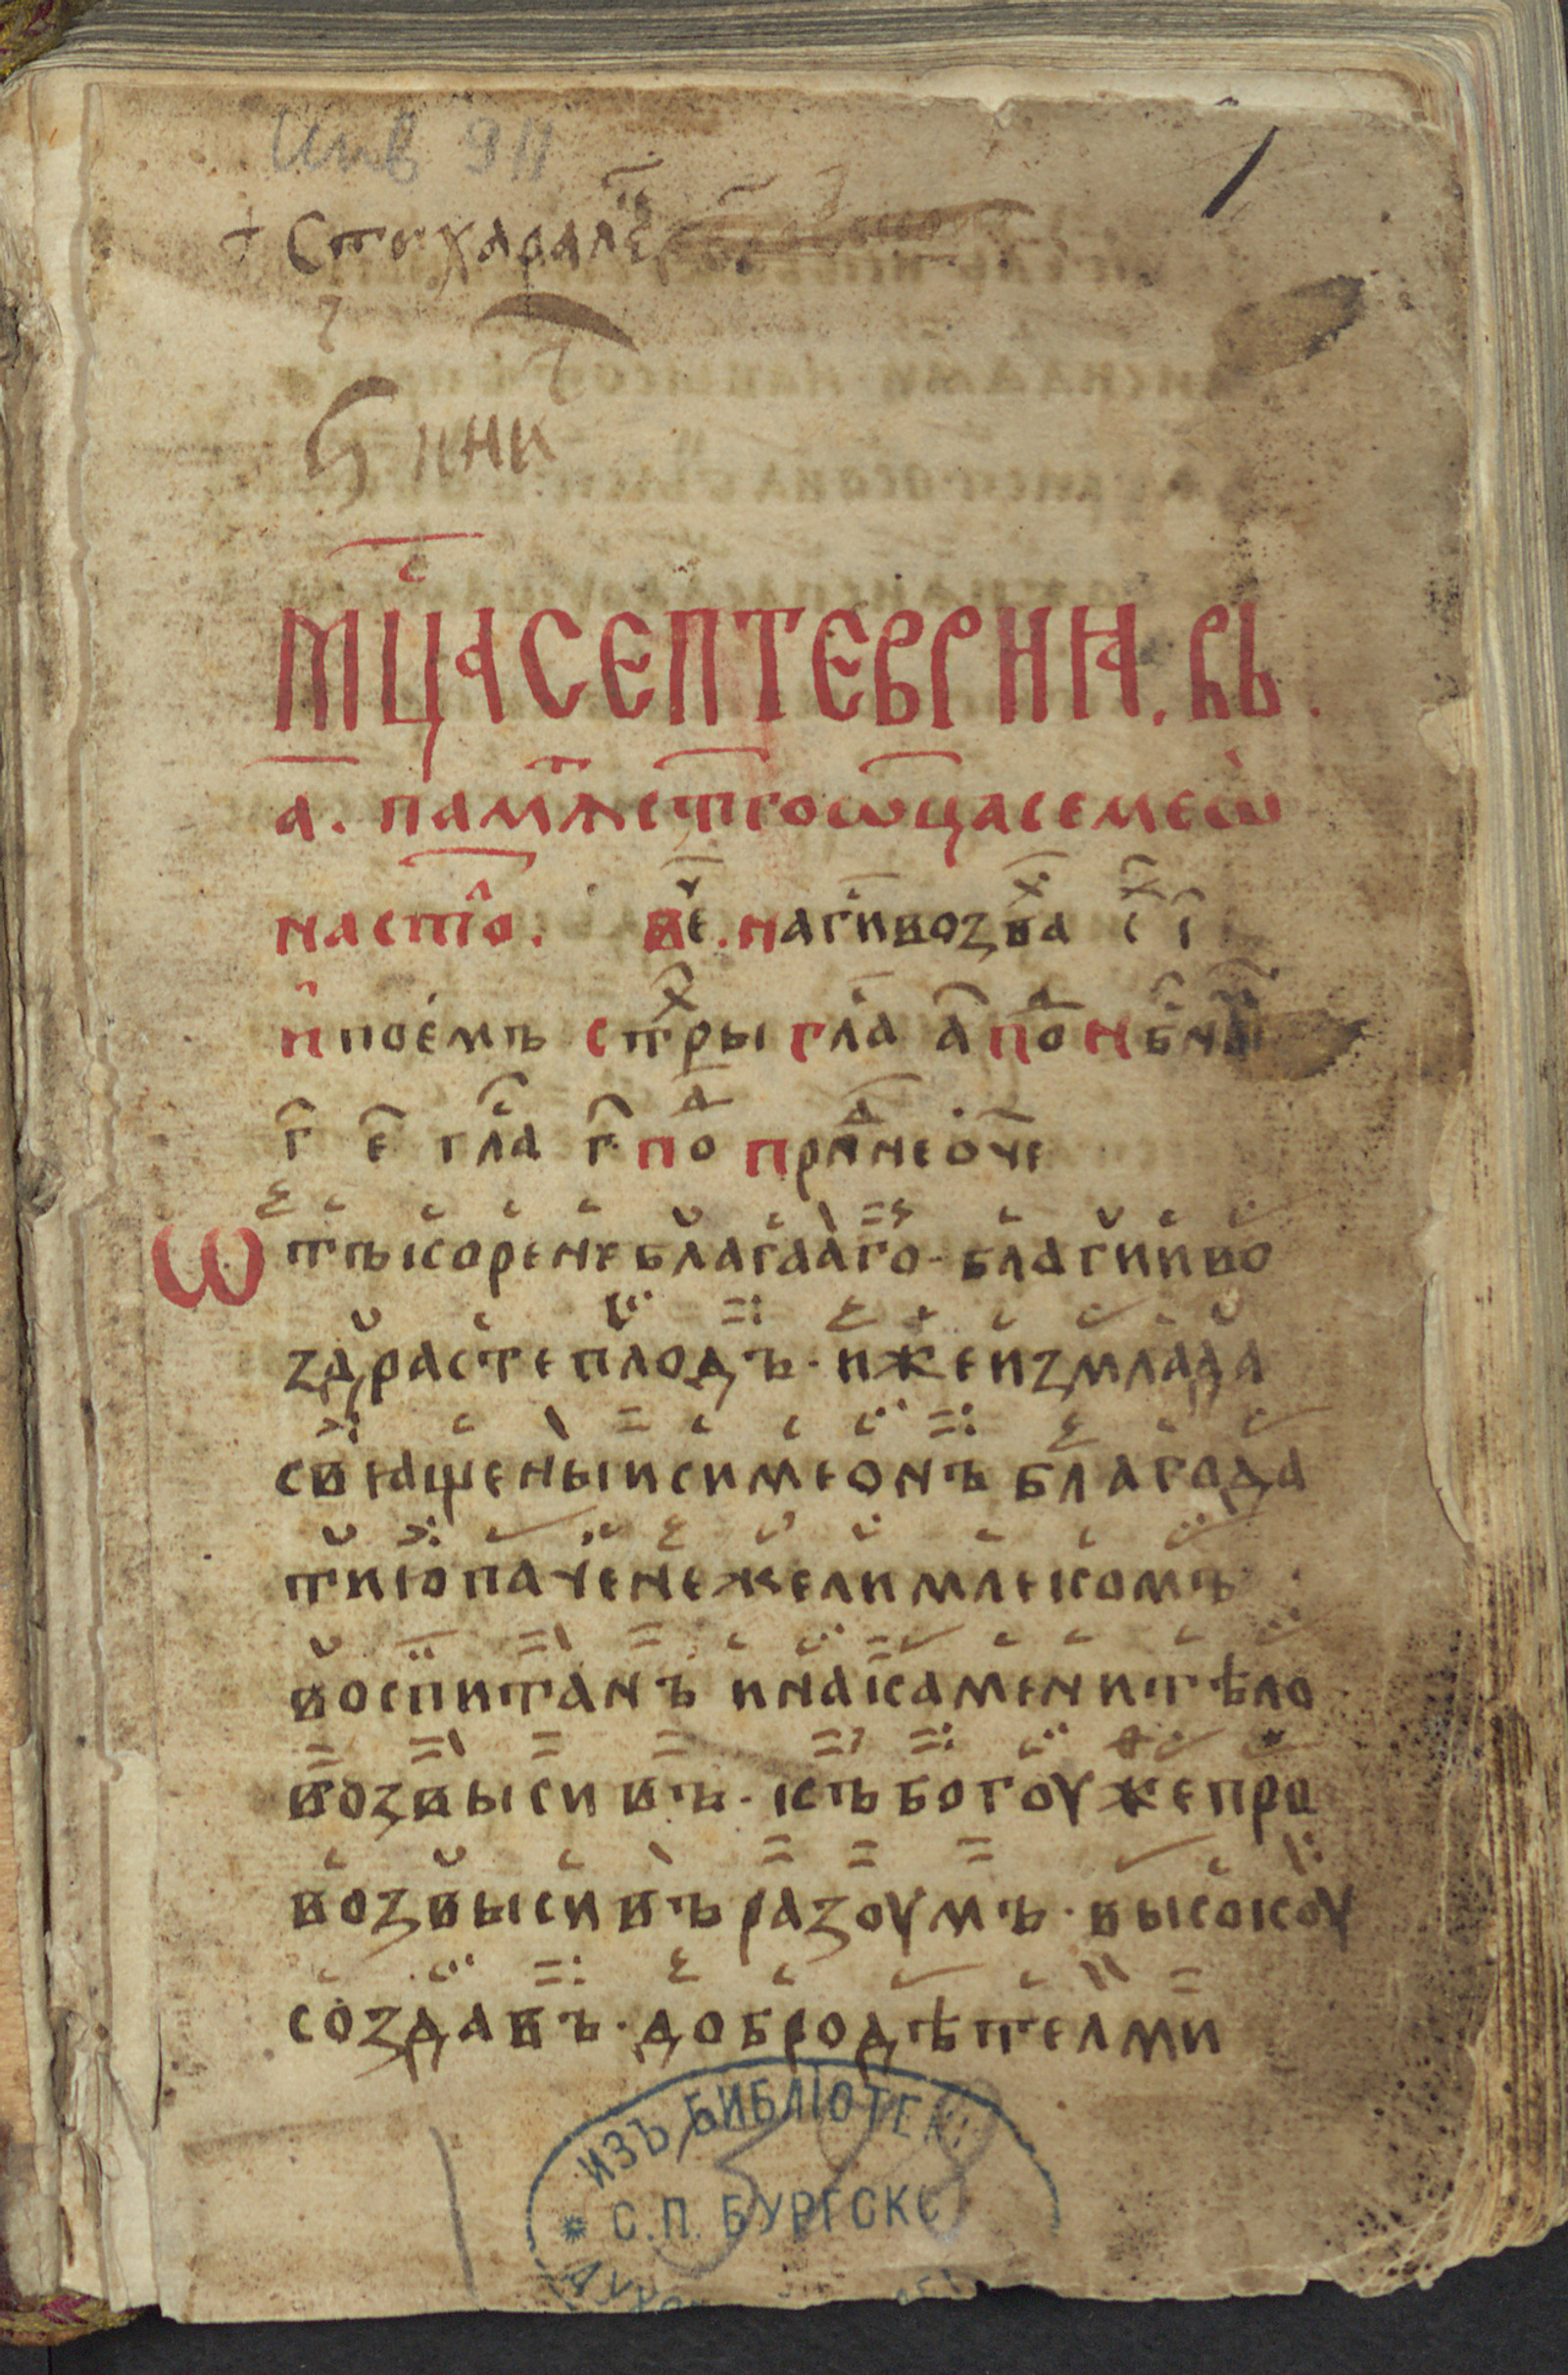 Инв 911
1
+ Стихарале
мц҃а септевриа. въ.
а҃. пам̑ж ст҃го ѿца семеѡ
на ст҃ло. ве҃. на г҃и возва с҃ і҃
и҃ поемъ ст҃ры гл҃а а҃ по нбн҃ы
г҃ е҃ гл҃а г҃ по при не оче
ѡтъ корене благааго · благии во
здрасте плодъ · иже и змлада
свѧщеныи симеонъ благода
тию паче нежели млекомъ
воспитанъ и на камени тѣло
возвысивъ · къ богоу же про
возвысивъ разоумъ · высокоу
создавъ · добродѣтелми
ИЗЪ БИБЛІОТЕК
* С.П. БУРГСКО